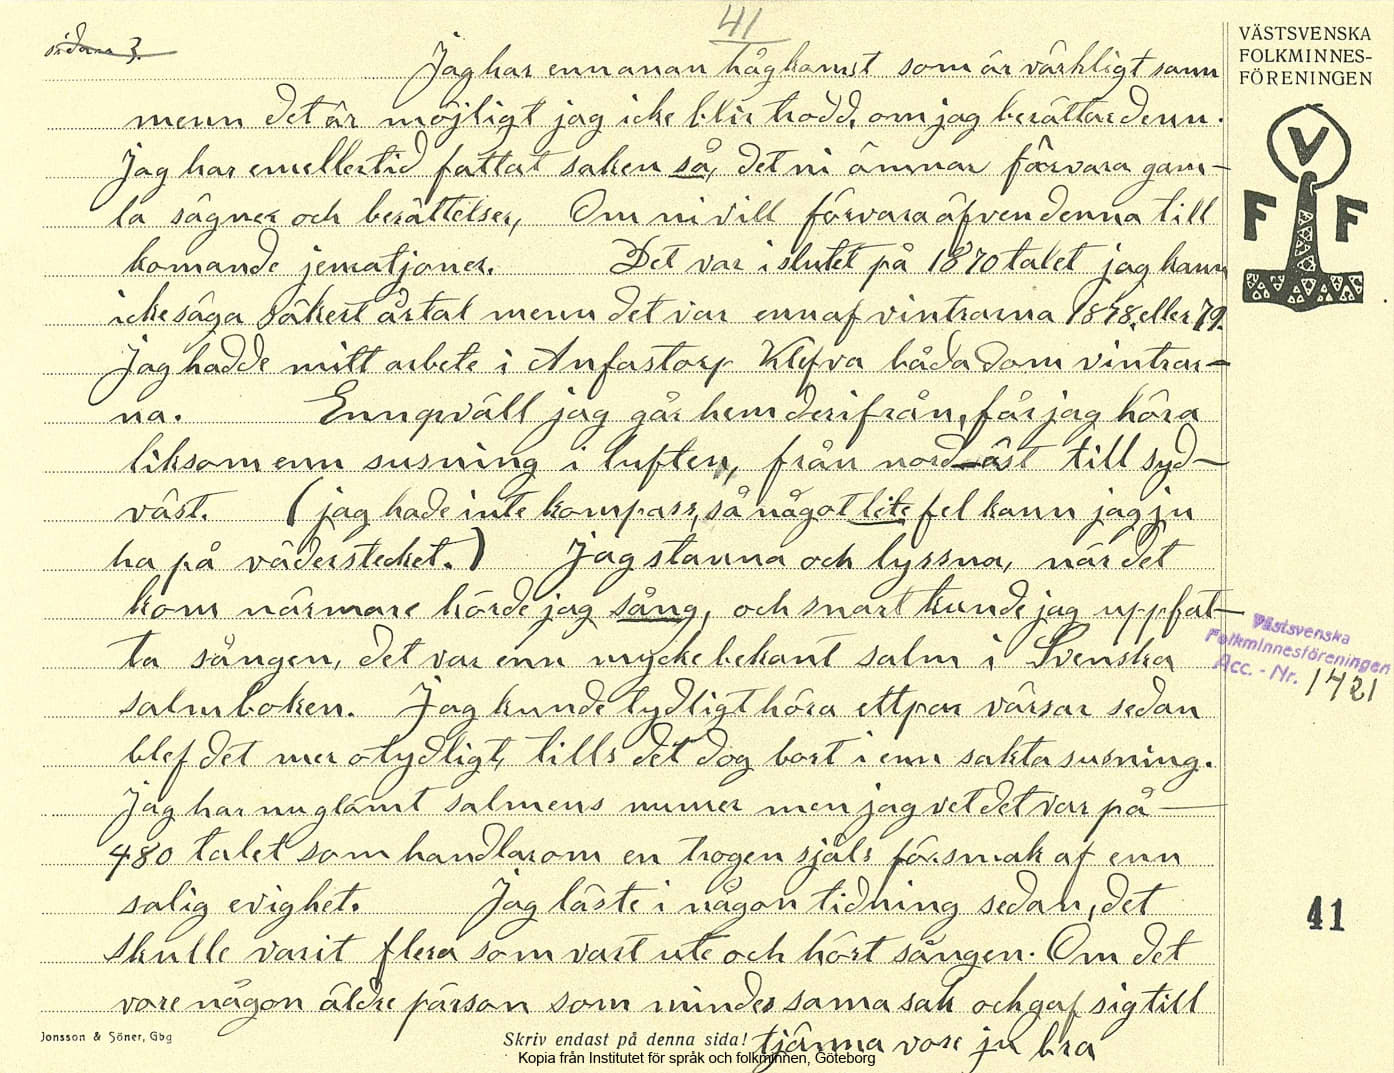 41
sidan 3.
VÄSTSVENSKA
FOLKMINNES-
FÖRENINGEN
V
F F
Jag har enn anan hågkomst som är värkligt sann
menn det är möjligt jag icke blir trodd, om jag berättar denn.
Jag har emellertid fattat saken så, det ni ämnar förvara gam-
la sägner och berättelser, Om ni vill förvara äfven denna till
komande jenratjoner. Det var i slutet på 1870 talet jag kann
icke säga säkert årtal menn det var enn af vintrarna 1878. eller 79.
Jag hadde mitt arbete i Anfastorp Klefva båda dom vintrar-
na. Enn qväll jag går hem derifrån, får jag höra
liksom enn susning i luften, från nord-öst till syd-
väst. (jag hade inte kompass, så något lite fel kann jag ju
ha på väderstecket.) Jag stanna och lyssna, när det
kom närmare hörde jag sång, och snart kunde jag uppfat-
ta sången, det var enn mycke bekant salm i Svenska
salmboken. Jag kunde tydligt höra ett par värsar sedan
blef det mer otydligt, tills det dog bort i enn sakta susning.
Jag har nu glömt salmens numer men jag vet det var på
480 talet som handlar om en trogen själs försmak af enn
salig evighet. Jag läste i någon tidning sedan, det
skulle varit flera som vart ute och hört sången. Om det
vore någon äldre pärson som mindes sama sak och gaf sig till
tjänna vore ju bra
Västsvenska
Folkminnesföreningen
Acc. - Nr. 1421
41
Jonsson & Söner, Gbg
Skriv endast på denna sida!
Kopia från Institutet för språk och folkminnen, Göteborg